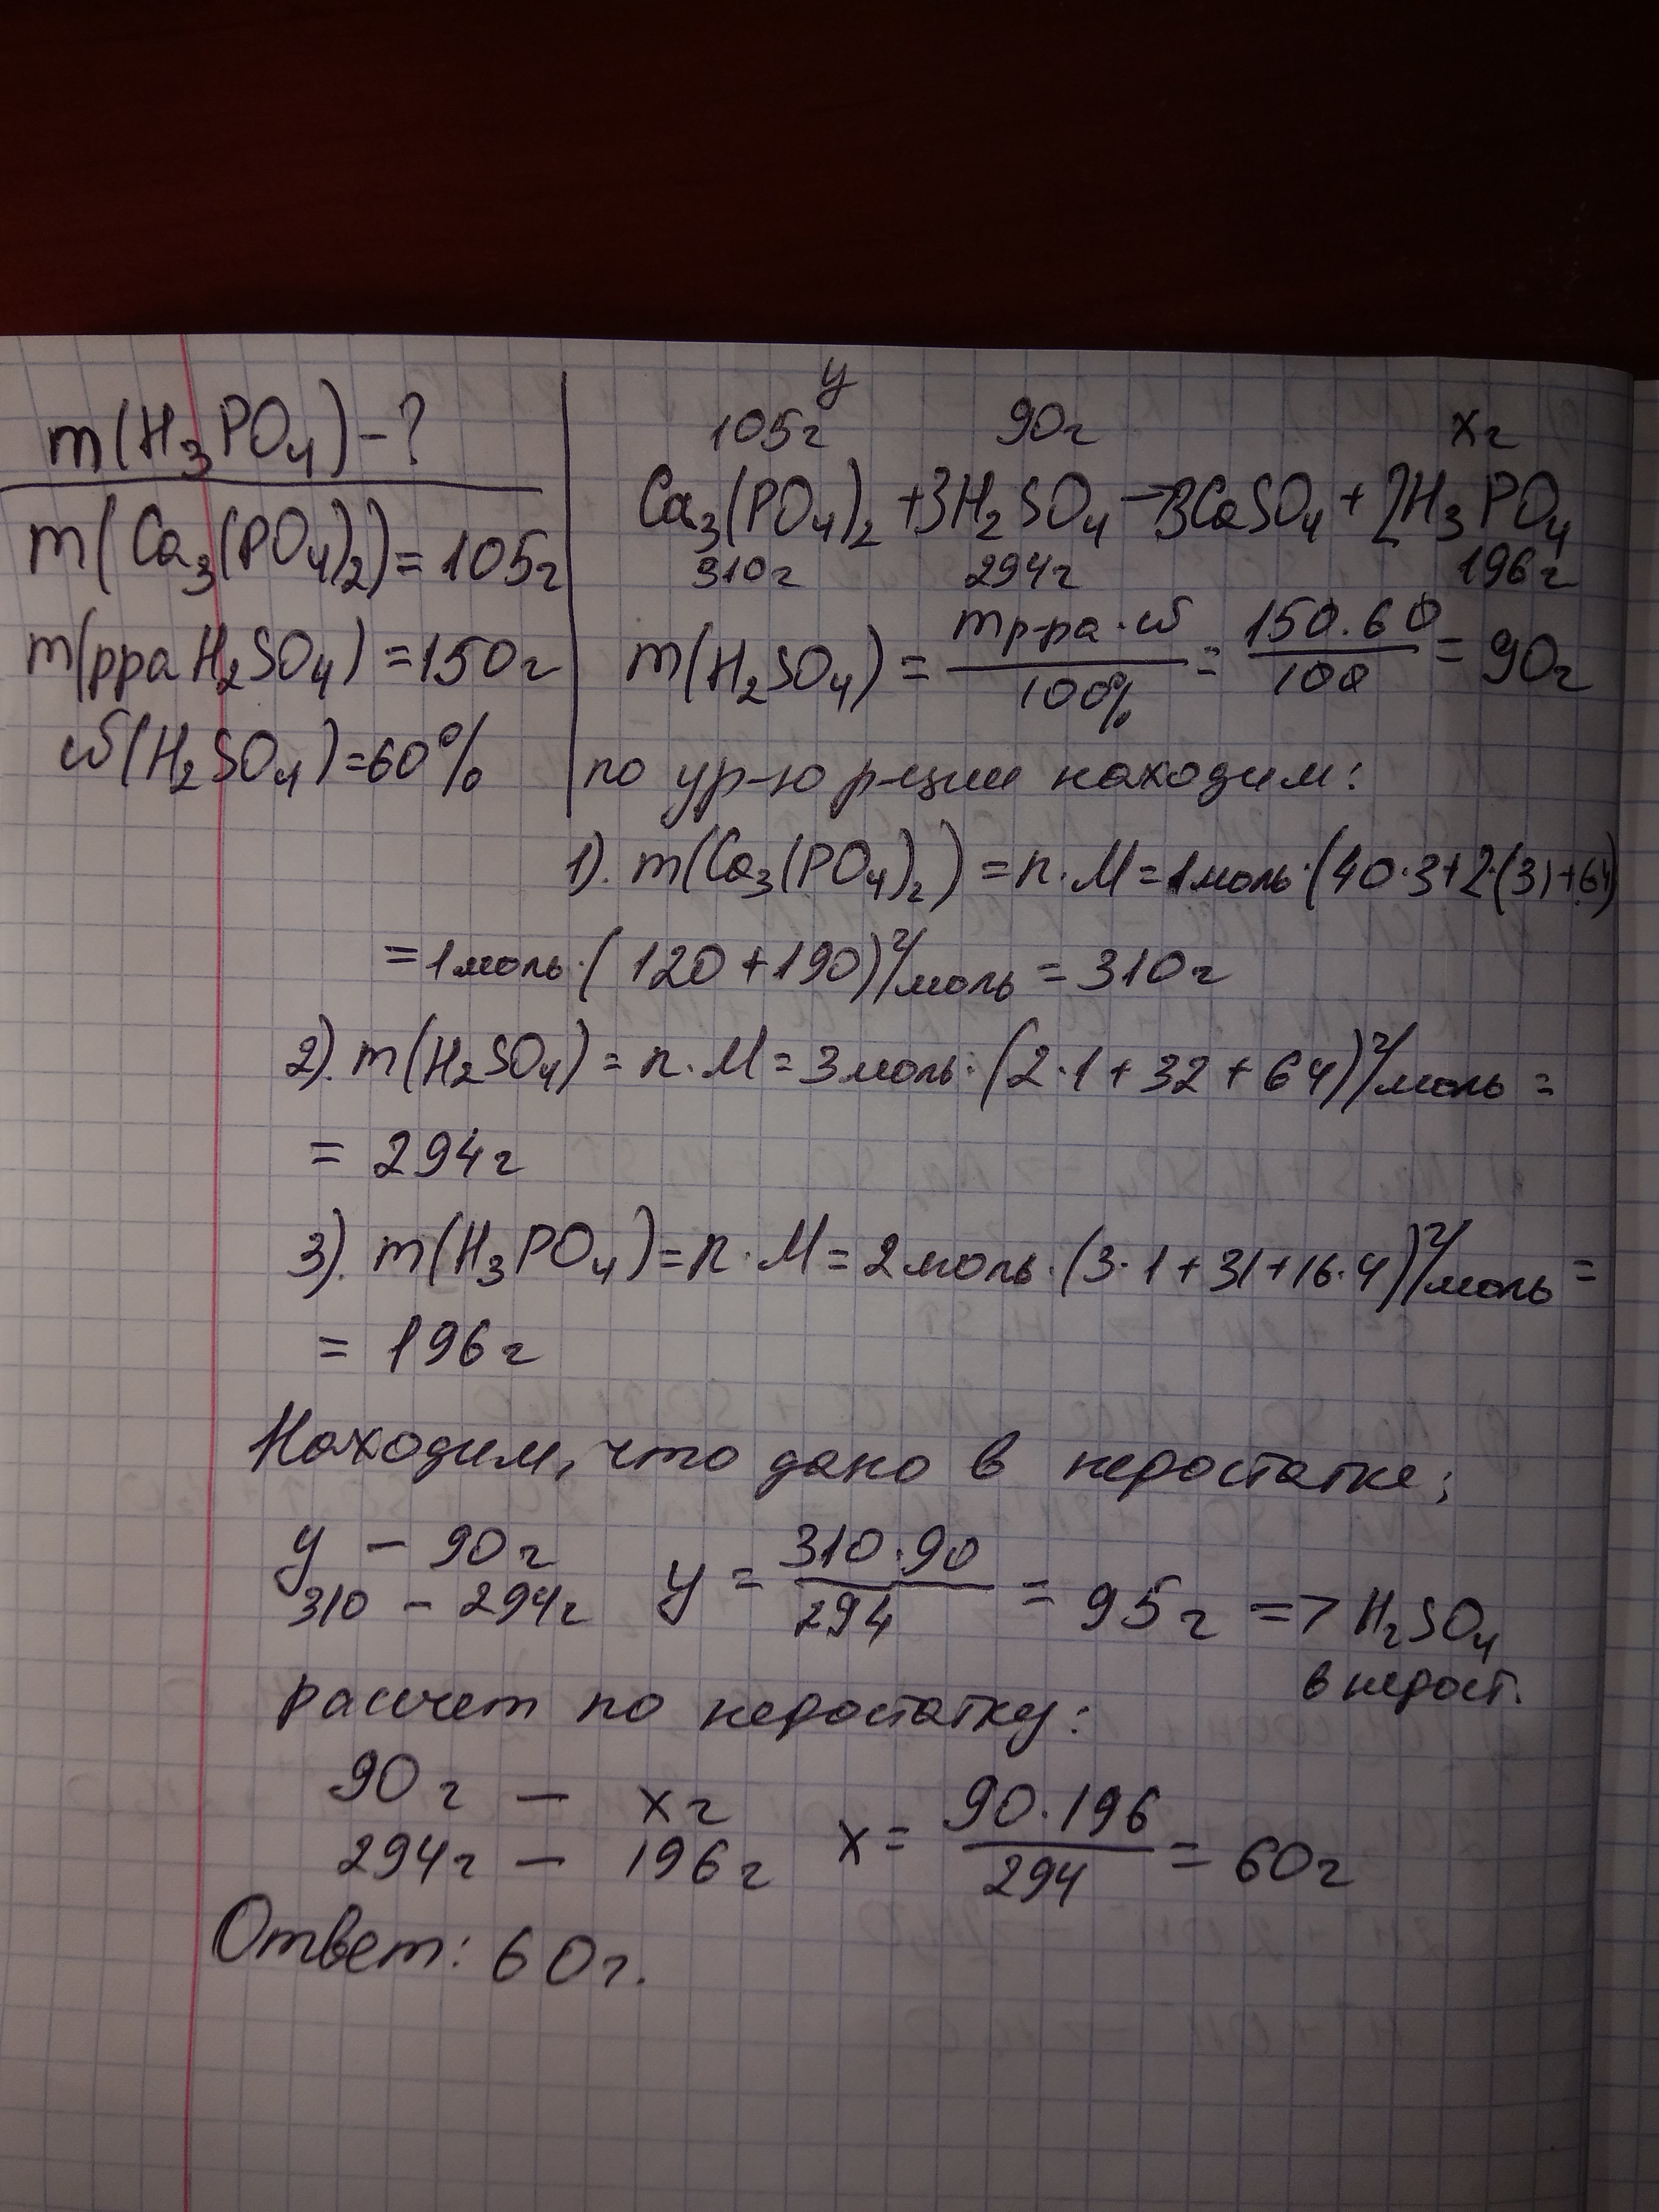 m(H₃PO₄) – ?
m(Ca₃(PO₄)₂) = 105г
m(рра H₂SO₄) = 150г
ω(H₂SO₄) = 60%
y
105г 90г xг
Ca₃(PO₄)₂ + 3H₂SO₄ → 3CaSO₄ + 2H₃PO₄
310г 294г 196г
m(H₂SO₄) = mр-ра·ω / 100% = 150·60 / 100 = 90г
по ур-ю р-ции находим:
1). m(Ca₃(PO₄)₂) = n·M = 1моль·(40·3+2·(31+64)
= 1моль·(120+190)г/моль = 310г
2). m(H₂SO₄) = n·M = 3моль·(2·1+32+64)г/моль =
= 294г
3). m(H₃PO₄) = n·M = 2моль·(3·1+31+16·4)г/моль =
= 196г
Находим, что дано в недостатке:
y – 90г
310 – 294г
y = 310·90 / 294 = 95г => H₂SO₄
в недост.
расчет по недостатку:
90г – xг
294г – 196г
x = 90·196 / 294 = 60г
Ответ: 60г.